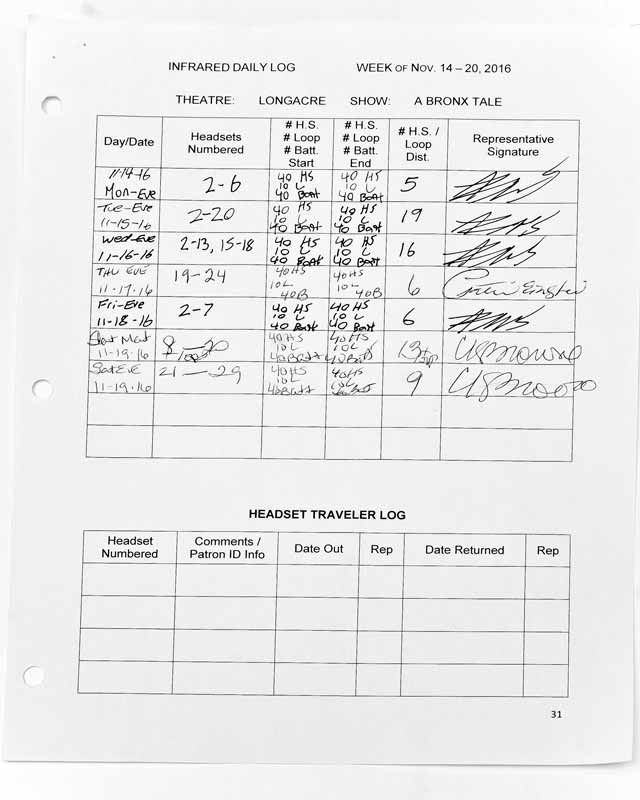 INFRARED DAILY LOG WEEK OF NOV. 14 – 20, 2016
THEATRE: LONGACRE SHOW: A BRONX TALE
Day/Date Headsets Numbered # H.S. # Loop # Batt. Start # H.S. # Loop # Batt. End # H.S. / Loop Dist. Representative Signature
11-14-16 Mon-Eve 2-6 40 HS 10 L 40 Batt 40 HS 10 L 40 Batt 5
Tue-Eve 11-15-16 2-20 40 HS 10 L 40 Batt 40 HS 10 L 40 Batt 19
Wed-Eve 11-16-16 2-13, 15-18 40 HS 10 L 40 Batt 40 HS 10 L 40 Batt 16
THU EVE 11-17-16 19-24 40HS 10L 40B 40HS 10L 40B 6
Fri-Eve 11-18-16 2-7 40 HS 10 L 40 Batt 40 HS 10 L 40 Batt 6
Sat Mat 11-19-16 8 — 20 40HS 10L 40Batt 40HS 10L 40Batt 13
Sat Eve 11-19-16 21 — 29 40HS 10L 40Batt 40HS 10L 9
HEADSET TRAVELER LOG
Headset Numbered Comments / Patron ID Info Date Out Rep Date Returned Rep
31